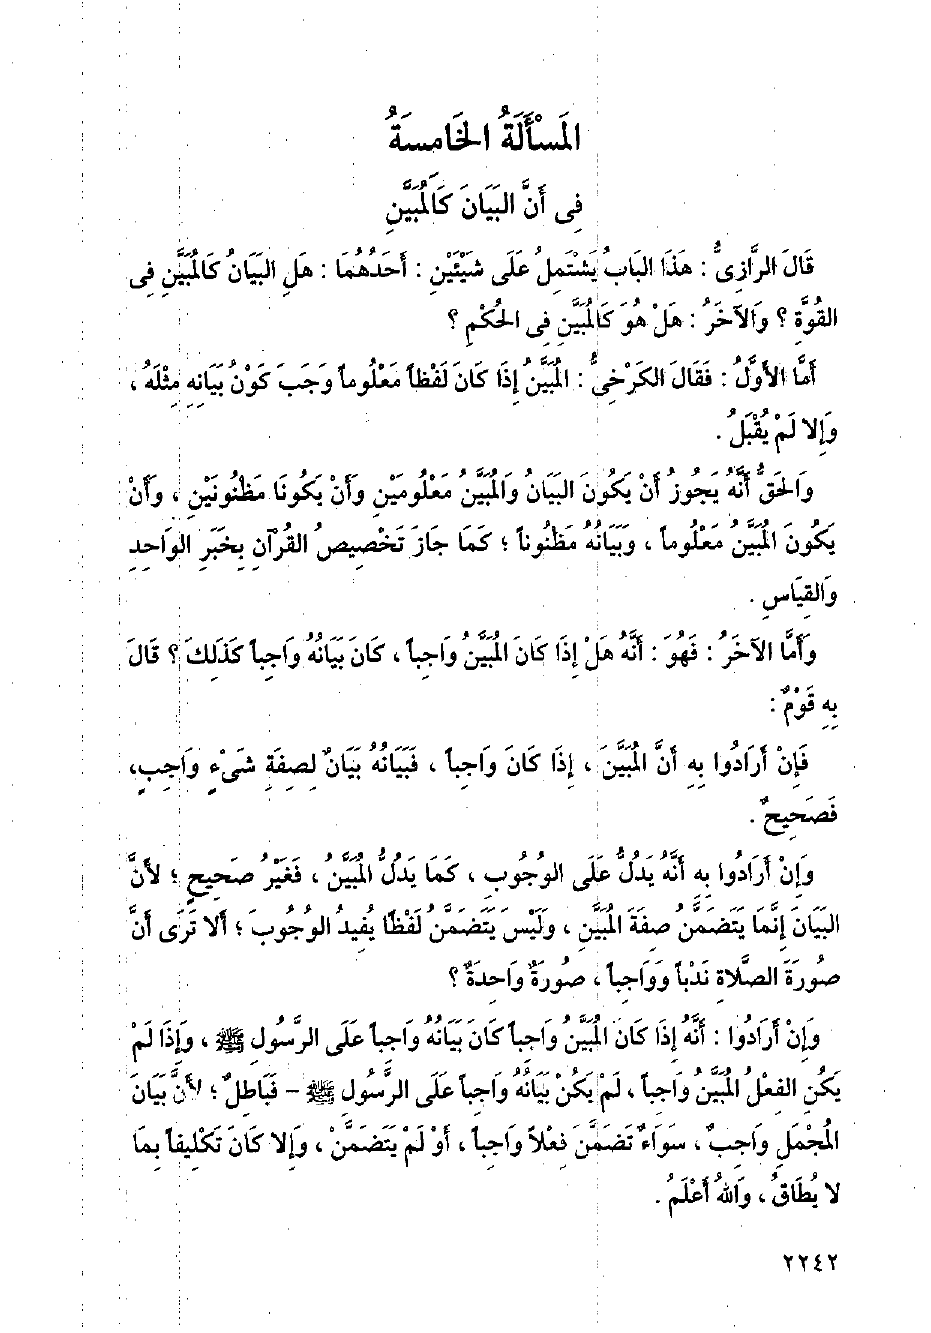 المَسْأَلَةُ الخَامِسَةُ
فِى أَنَّ البَيَانَ كَالمُبَيَّنِ
قَالَ الرَّازِىُّ : هَذَا البَابُ يَشْتَمِلُ عَلَى شَيْئَيْنِ : أَحَدُهُمَا : هَلِ البَيَانُ كَالمُبَيَّنِ فِى
القُوَّةِ ؟ وَالآخَرُ : هَلْ هُوَ كَالمُبَيَّنِ فِى الحُكْمِ ؟
أَمَّا الأَوَّلُ : فَقَالَ الكَرْخِىُّ : المُبَيَّنُ إِذَا كَانَ لَفْظاً مَعْلُوماً وَجَبَ كَوْنُ بَيَانِهِ مِثْلَهُ ،
وَإِلا لَمْ يُقْبَلُ .
وَالحَقُّ أَنَّهُ يَجُوزُ أَنْ يَكُونَ البَيَانُ وَالمُبَيَّنُ مَعْلُومَيْنِ وَأَنْ يَكُونَا مَظْنُونَيْنِ ، وَأَنْ
يَكُونَ المُبَيَّنُ مَعْلُوماً ، وَبَيَانُهُ مَظْنُوناً ؛ كَمَا جَازَ تَخْصِيصُ القُرْآنِ بِخَبَرِ الوَاحِدِ
وَالقِيَاسِ .
وَأَمَّا الآخَرُ : فَهُوَ : أَنَّهُ هَلْ إِذَا كَانَ المُبَيَّنُ وَاجِباً ، كَانَ بَيَانُهُ وَاجِباً كَذَلِكَ ؟ قَالَ
بِهِ قَوْمٌ :
فَإِنْ أَرَادُوا بِهِ أَنَّ المُبَيَّنَ ، إِذَا كَانَ وَاجِباً ، فَبَيَانُهُ بَيَانٌ لِصِفَةِ شَىْءٍ وَاجِبٍ،
فَصَحِيحٌ .
وَإِنْ أَرَادُوا بِهِ أَنَّهُ يَدُلُّ عَلَى الوُجُوبِ ، كَمَا يَدُلُّ المُبَيَّنُ ، فَغَيْرُ صَحِيحٍ ؛ لأَنَّ
البَيَانَ إِنَّمَا يَتَضَمَّنُ صِفَةَ المُبَيَّنِ ، وَلَيْسَ يَتَضَمَّنُ لَفْظًا يُفِيدُ الوُجُوبَ ؛ أَلا تَرَى أَنَّ
صُورَةَ الصَّلاةِ نَدْباً وَوَاجِباً ، صُورَةٌ وَاحِدَةٌ ؟
وَإِنْ أَرَادُوا : أَنَّهُ إِذَا كَانَ المُبَيَّنُ وَاجِباً كَانَ بَيَانُهُ وَاجِباً عَلَى الرَّسُولِ ﷺ ، وَإِذَا لَمْ
يَكُنِ الفِعْلُ المُبَيَّنُ وَاجِباً ، لَمْ يَكُنْ بَيَانُهُ وَاجِباً عَلَى الرَّسُولِ ﷺ – فَبَاطِلٌ ؛ لأَنَّ بَيَانَ
المُجْمَلِ وَاجِبٌ ، سَوَاءٌ تَضَمَّنَ فِعْلاً وَاجِباً ، أَوْ لَمْ يَتَضَمَّنْ ، وَإِلا كَانَ تَكْلِيفاً بِمَا
لا يُطَاقُ ، وَاللهُ أَعْلَمُ .
٢٢٤٢